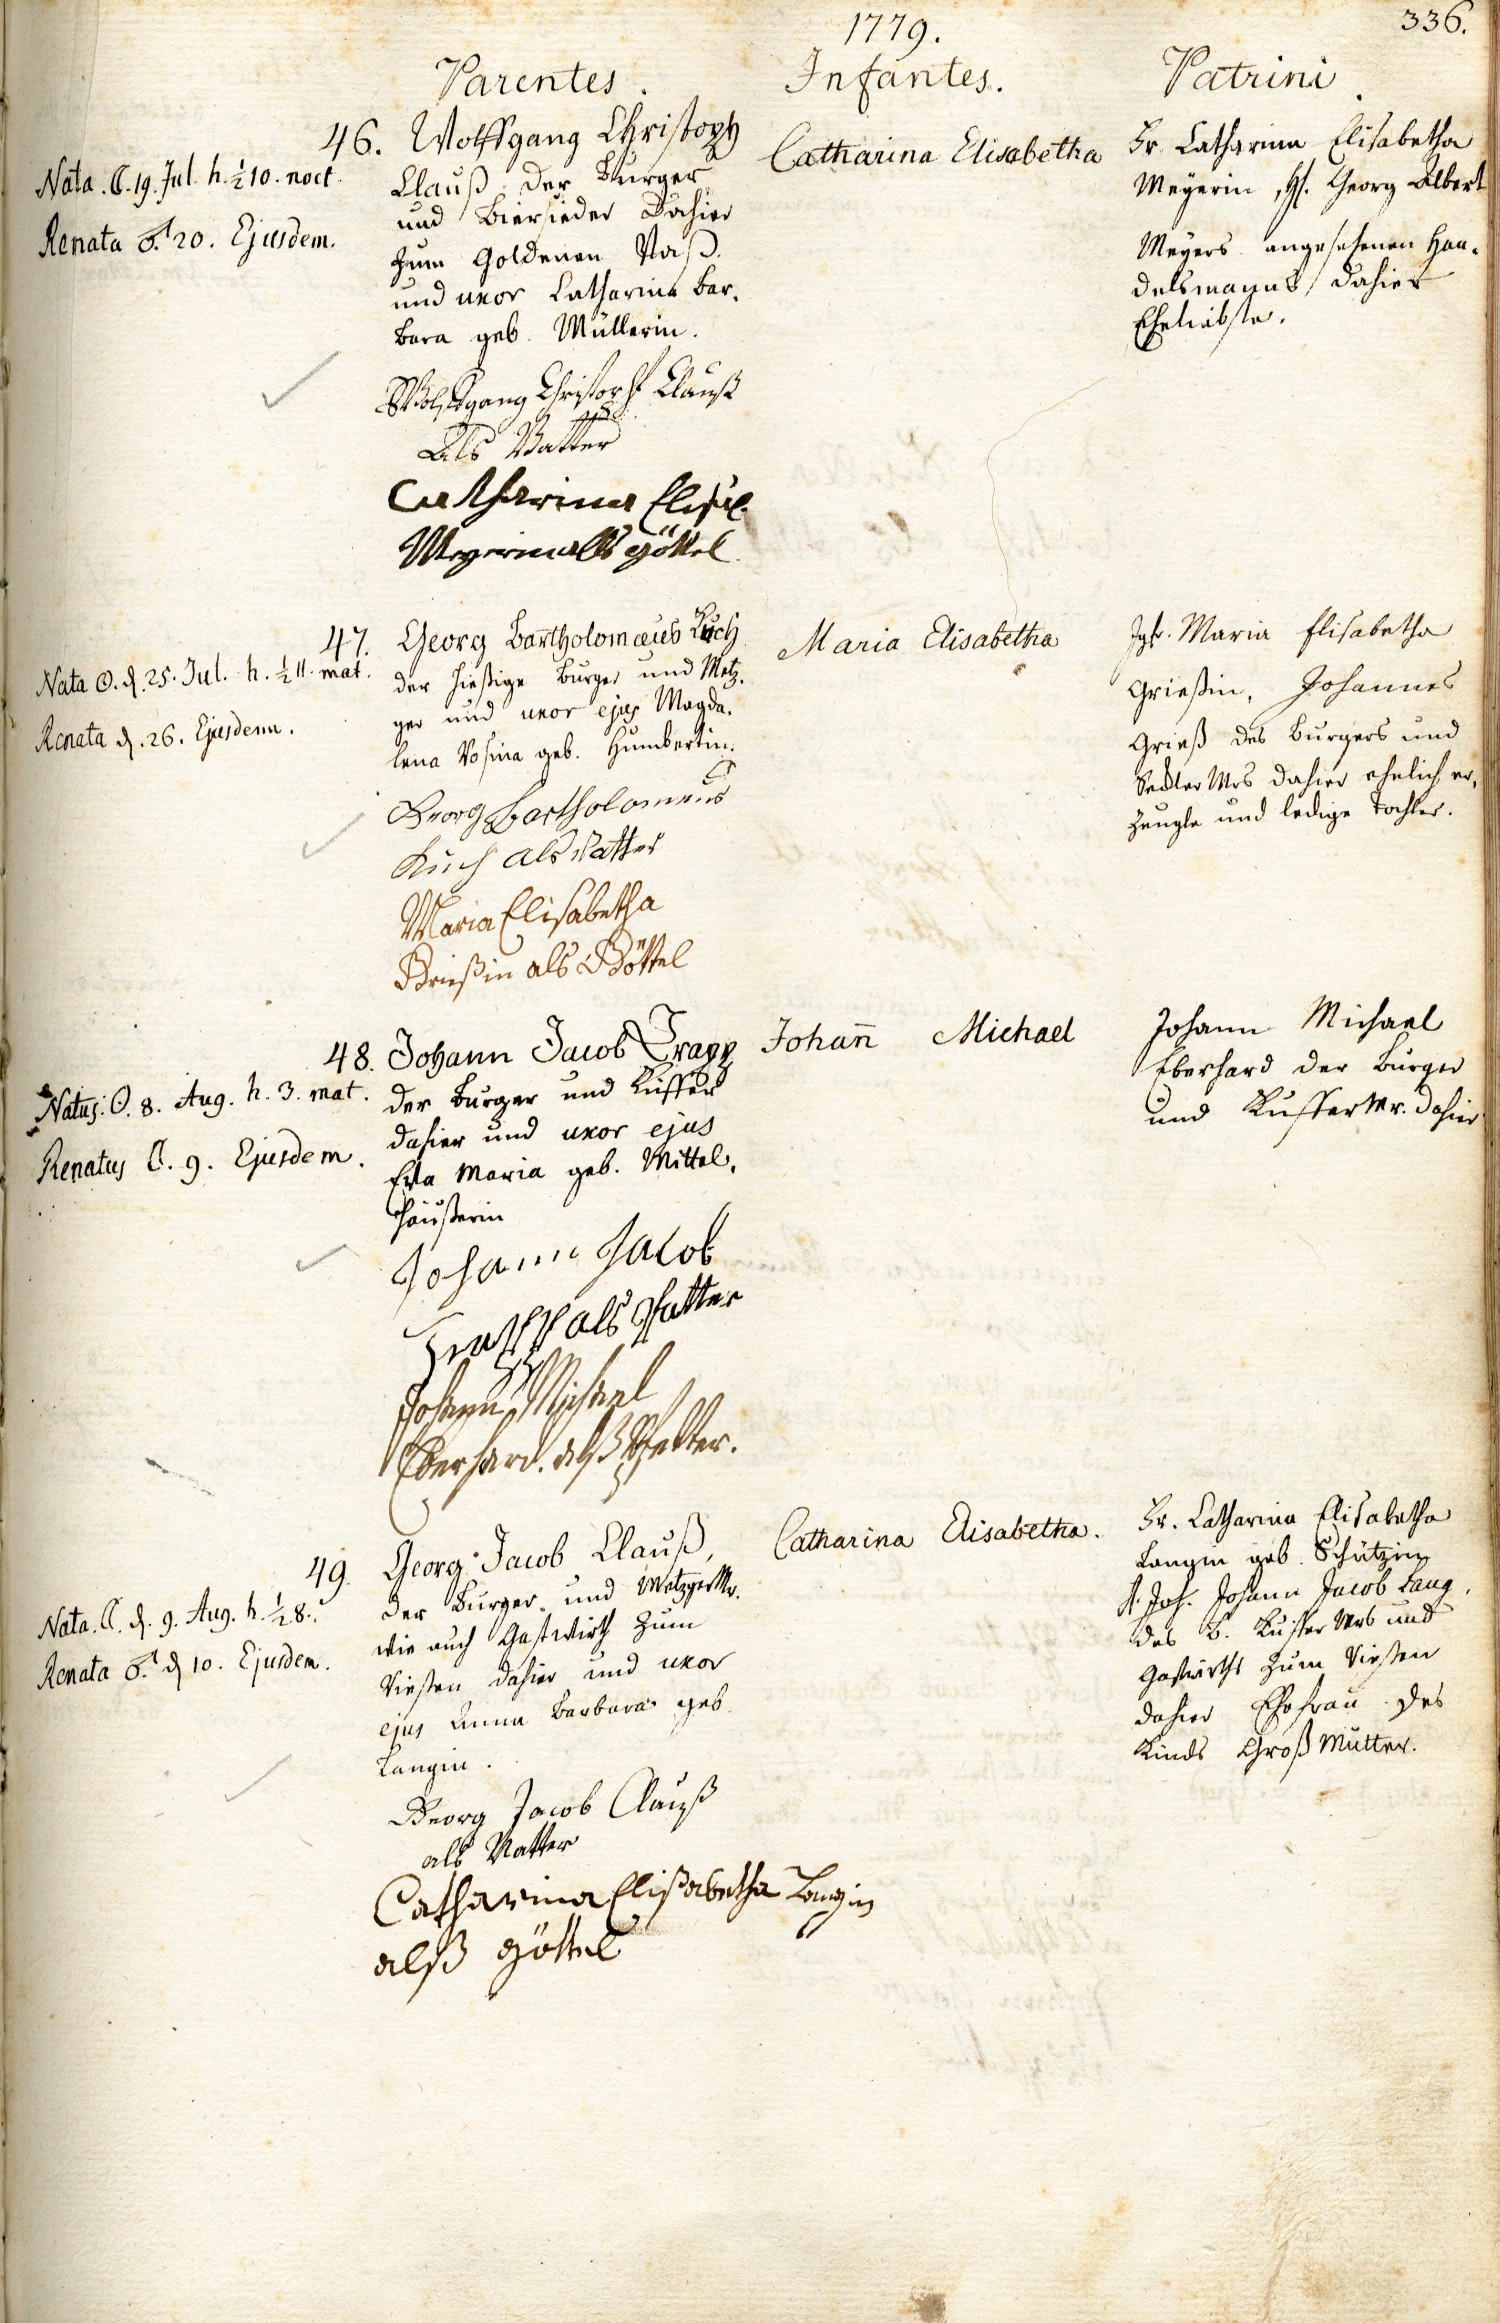 1779.
336.
Parentes.
Infantes.
Patrini.
Nata. ☾. 19. Jul. h. ½ 10. noct.
Renata ♂. 20. Ejusdem.
46. Wolffgang Christoph
Clauß der Burger
und Biersieder Dahier
zum Goldenen Faß.
und uxor Catharina Bar-
bara geb. Müllerin.
Wolffgang Christoph Clauß
Als Vatter
Catharina Elisab.
Meyerin als göttel
Catharina Elisabetha
Fr. Catharina Elisabetha
Meyerin, H. Georg Albert
Meyers angesehenen Han-
delsmanns dahier
Eheliebste.
Nata ☉. d. 25. Jul. h. ½ 11. mat.
Renata d. 26. Ejusdem.
47. Georg Bartholomæus Kuch
der hießige Burger und Metz-
ger und uxor ejus Magda-
lena Rosina geb. Humbertin.
Georg Bartholomeus
Kuch als Vatter
Maria Elisabetha
Grießin als Göttel
Maria Elisabetha
Jgfr. Maria Elisabetha
Grießin, Johannes
Grieß des Burgers und
Seckler Mrs dahier ehelich er-
zeugte und ledige Tochter.
Natus ☉. 8. Aug. h. 3. mat.
Renatus ☾. 9. Ejusdem.
48. Johann Jacob Trapp
der Burger und Küffer
dahier und uxor ejus
Eva Maria geb. Mittel-
häußerin
Johann Jacob
Trapp als Vatter
Johann Michael
Eberhard. alß Pfetter.
Johan̄ Michael
Johann Michael
Eberhard der Burger
und Kuffer Mr. dahier
Nata. ☾. d. 9. Aug. h. ½ 8.
Renata ♂. d 10. Ejusdem.
49. Georg Jacob Clauß,
der Burger und Metzger Mr.
wie auch Gastwirth zum
Rießen dahier und uxor
ejus Anna Barbara geb.
Langin.
Georg Jacob Clauß
als Vatter
Catharina Elißabetha Langin
alß göttel
Catharina Elisabetha.
Fr. Catharina Elisabetha
Langin geb. Schützin
Joh. Johann Jacob Lang,
des B. Kuffer Mrs und
Gastwirths zum Rießen
dahier Ehefrau des
Kinds Groß Mutter.